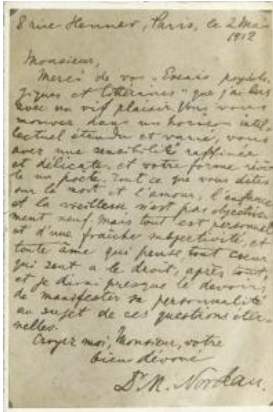 8 rue Henner, Paris, le 2 Mai
1912
Monsieur,
Merci de vos "Essais psycholo-
giques et littéraires" que j'ai lus
avec un vif plaisir. Vous vous
mouvez dans un horizon intel-
lectuel étendu et varié, vous
avez une sensibilité raffinée
et délicate, et votre forme révè-
le un poète. Tout ce que vous dites
sur la mort et l'amour, l'enfance
et la vieillesse n'est pas objective-
ment neuf. Mais tout est personnel
et d'une fraîche subjectivité, et
toute âme qui pense, tout coeur
qui sent a le droit, après tout,
et je dirai presque le devoir,
de manifester sa personnalité
au sujet de ces questions éter-
nelles.
Croyez moi, Monsieur, votre
bien dévoué
Dr M. Nordau.